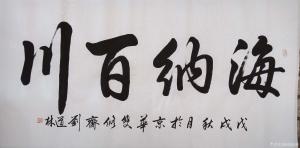 海纳百川
戊戌秋月於京華雙修齋劉道林